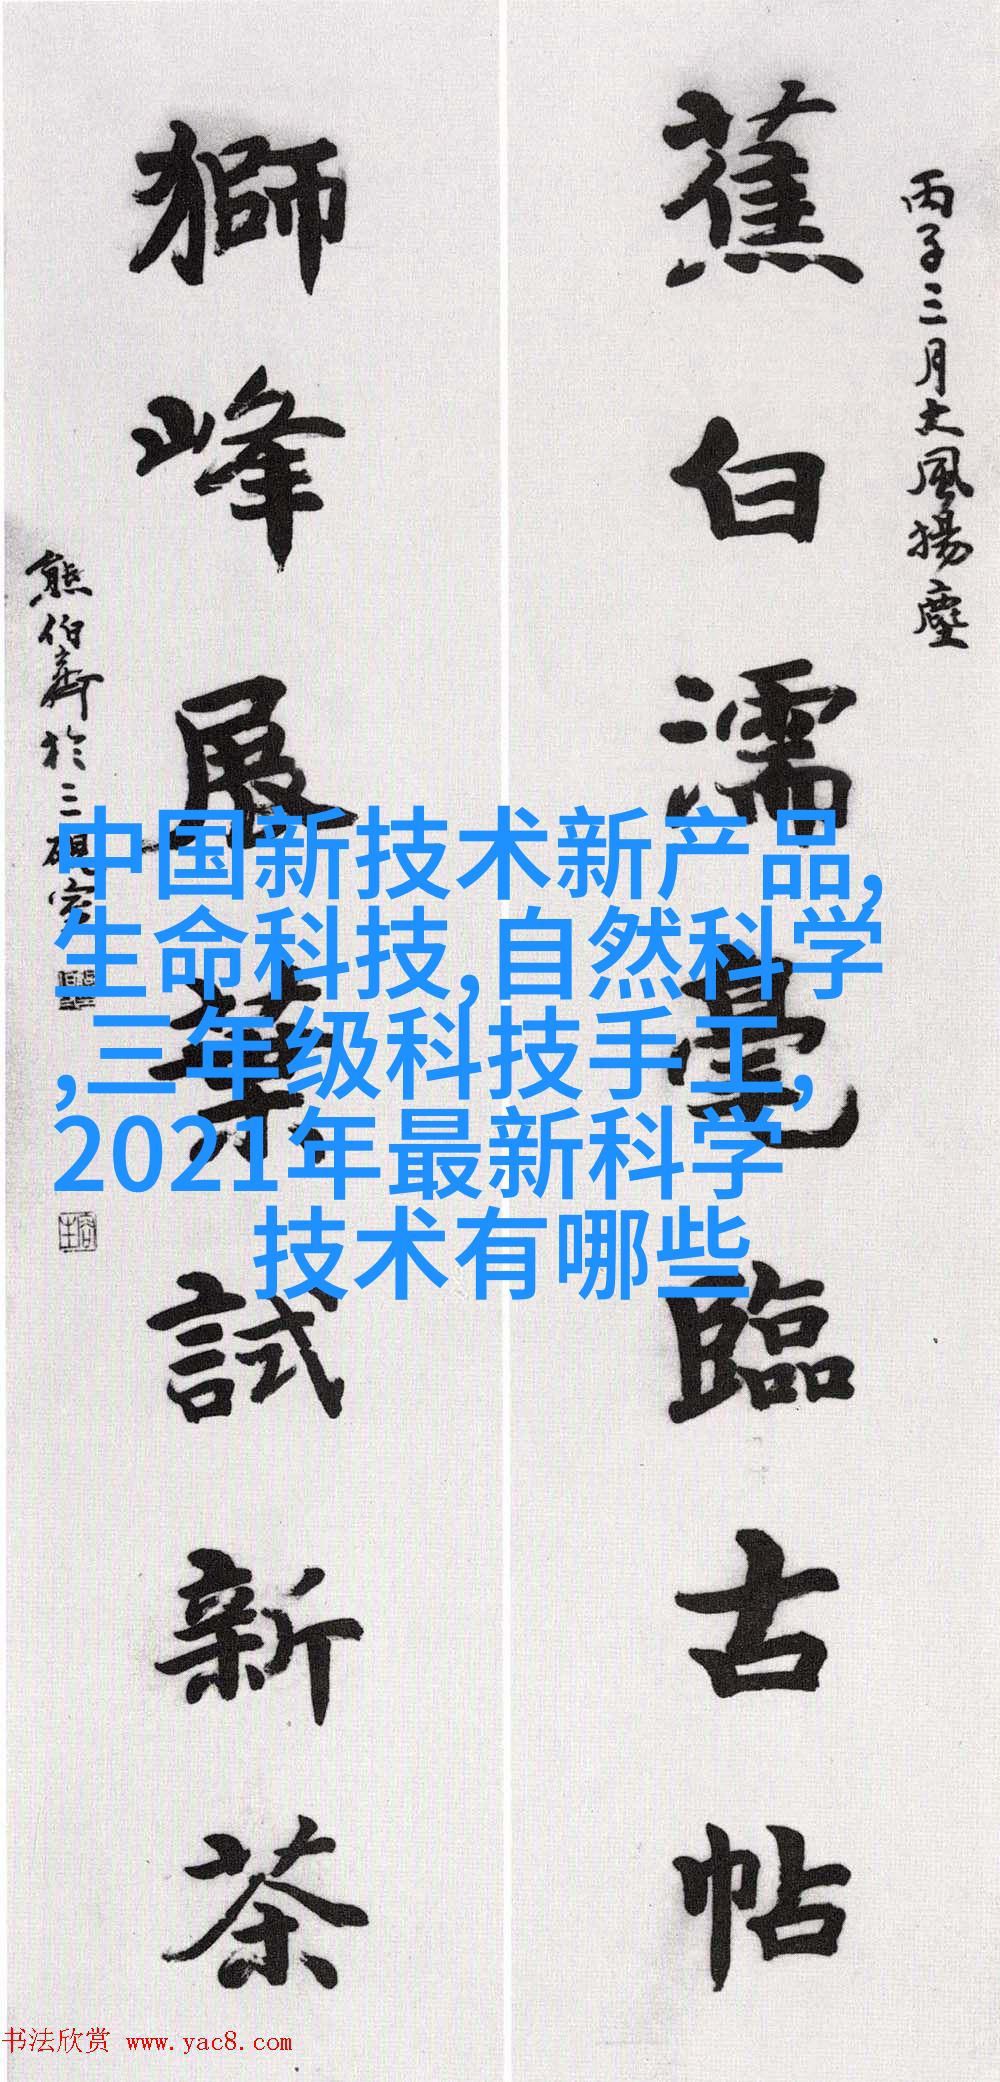 丙子三月大風揚塵
蕉白濡毫臨古帖
獅峰展葉試新茶
熊伯齊於三硯室
中国新技术新产品,
生命科技,自然科学
,三年级科技手工,
2021年最新科学
技术有哪些
书法欣赏 www.yac8.com